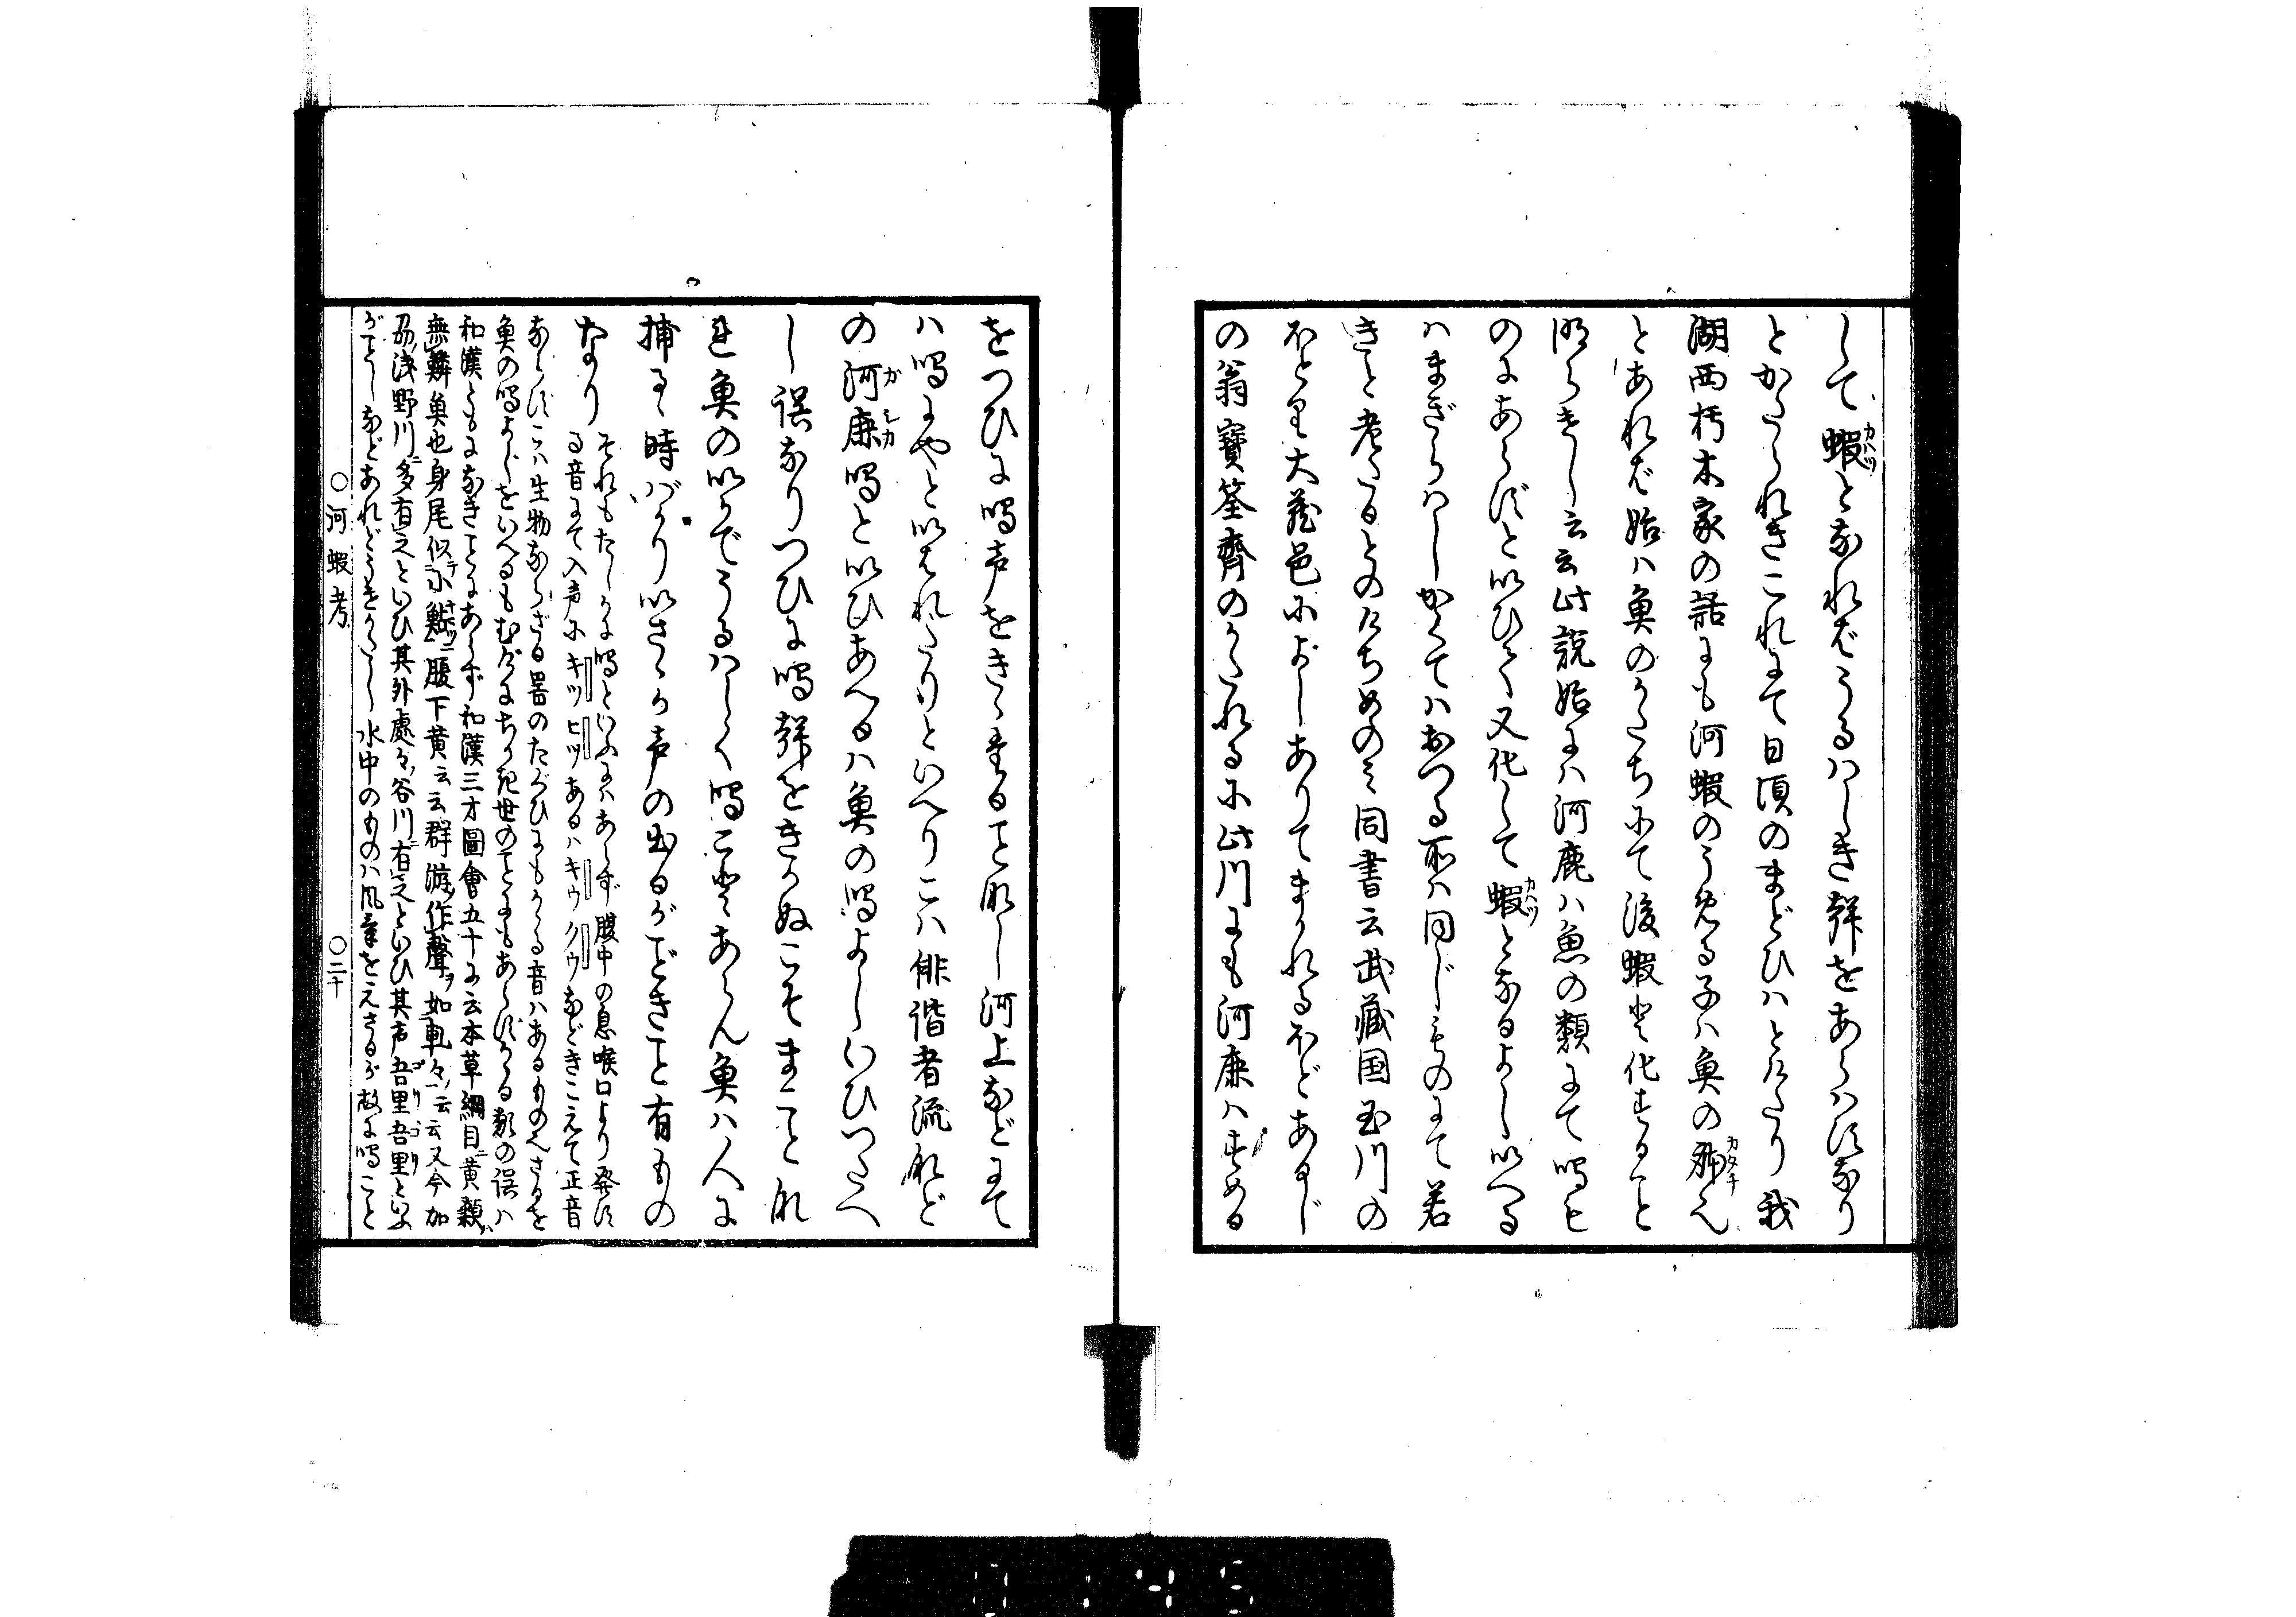 して蝦となればうるはしき聲をあらはすなり
とかたられきこれにて日頃のまどひはとけたり我
湖西朽木家の話にも河蝦のうめる子は魚の形也
とあれば始ハ魚のかたちにて後蝦に化すること
明らけし云云此説始にハ河鹿ハ魚の類にて鳴も
のにあらずと以ひて又化して蝦となるよし以へる
ハまぎらはしかくてハおつる所ハ同じものにて若
きと老たるとのけぢめのミ同書云武藏国玉川の
ほとり大蔵邑によしありてまかれるほどあるじ
の翁寶筌齊のかたれるに此川にも河廉ハすめる
をつひに鳴声をきゝたることなし河上などにて
ハ鳴にやと以はれたりといへりこハ俳諧者流など
の河廉鳴と以ひあへるハ魚の鳴よしいひつたへ
し誤なりつひに鳴聲をきかぬこそまことな
れ魚の以かでうるはしく鳴ことあらん魚ハ人に
捕るゝ時バかり以さゝか声の出るがごときこと有もの
なり
それもたしかに鳴といふにハあらず腹中の息喉口より発す
る音にて入声にキツヒツあるハキウクウなどきこえて正音
ならずこハ生物ならざる器のたぐひにもかゝる音ハあるものへさるを
魚の鳴よしをいへるもむげにちかき世のことにもあらずかゝる類の誤ハ
和漢ともになきことにあらず和漢三才圖會五十に云本草綱目ニ黄顙
無鱗魚也身尾似テ小鮎ニ腹下黄云云群游作聲ヲ如軋々云云又今加
刕浅野川ニ多有之といひ其外處々谷川ニ有之といひ其声吾里吾里といふ
がごとしなどあれどうけがたし水中のものハ風氣をえざるが故に鳴こと
○河蝦考
○二十